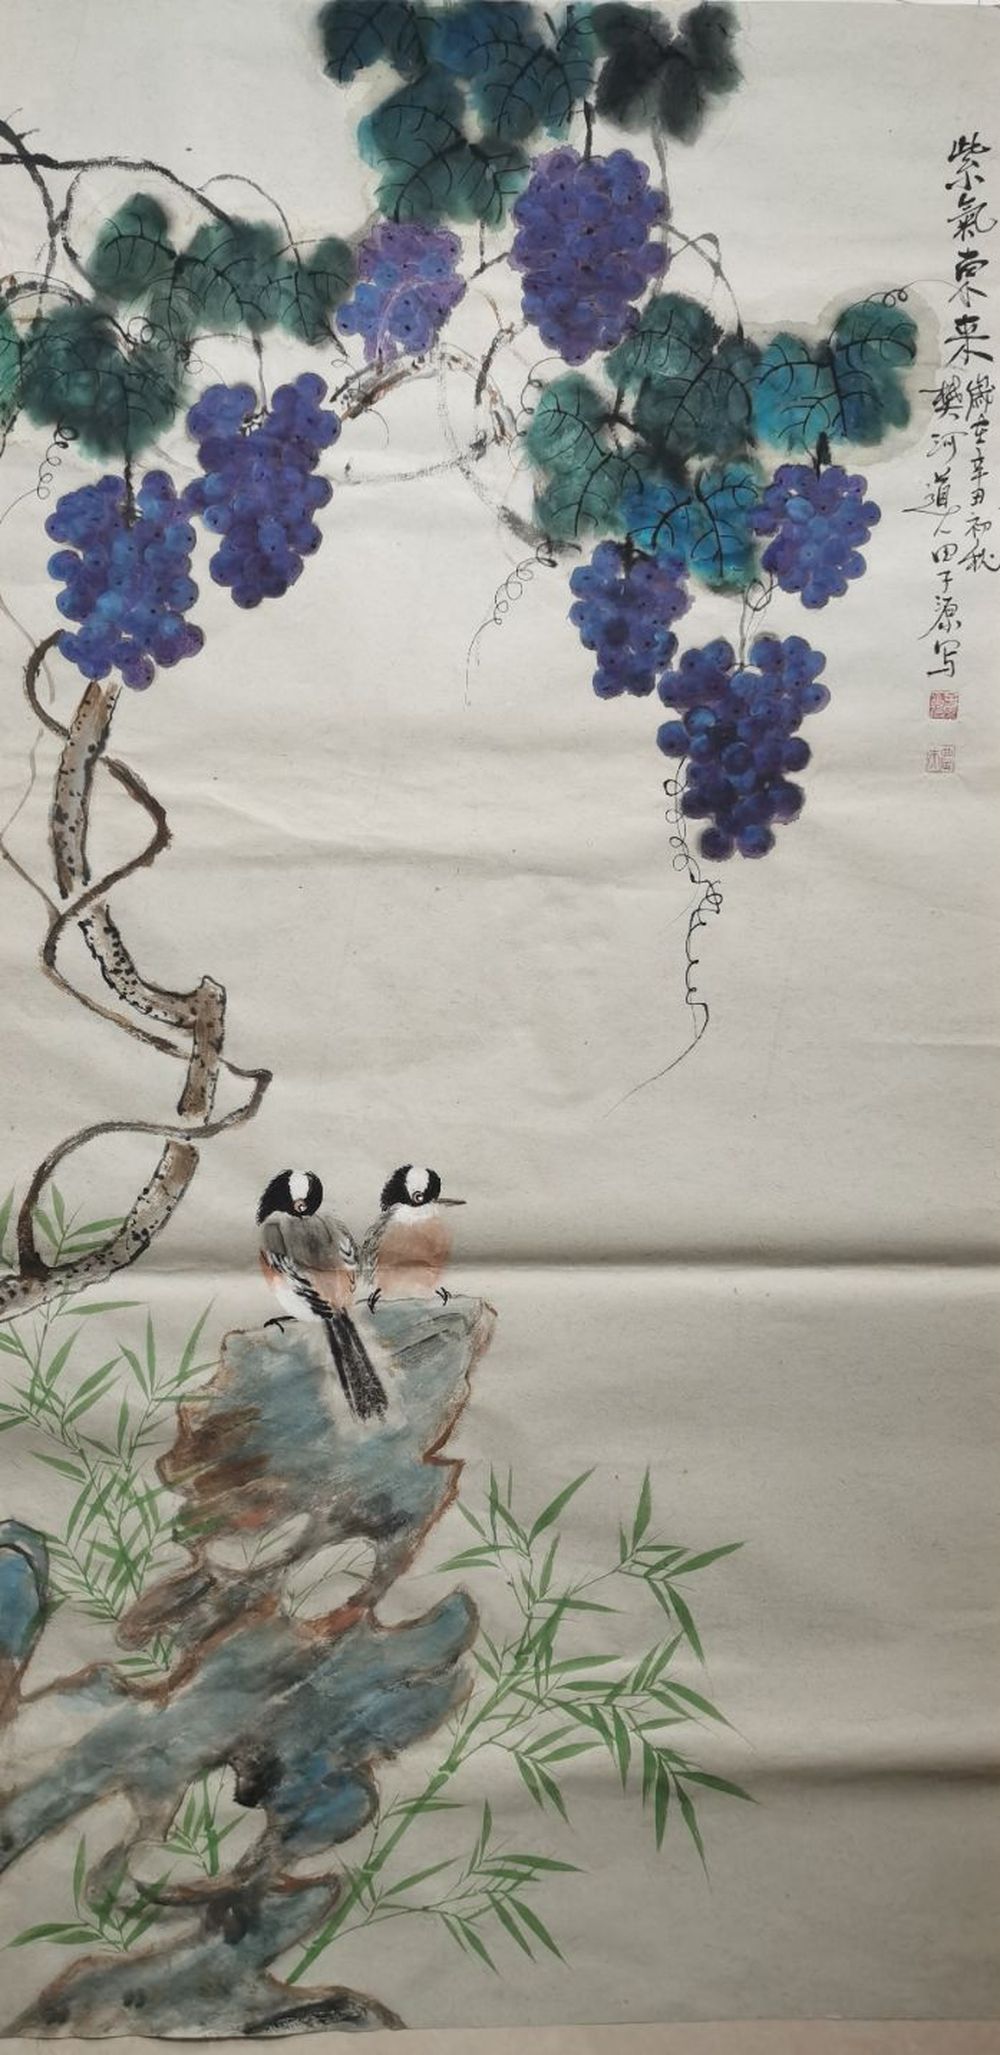 紫氣東来
歲在辛丑初秋
樊河道人田子源写